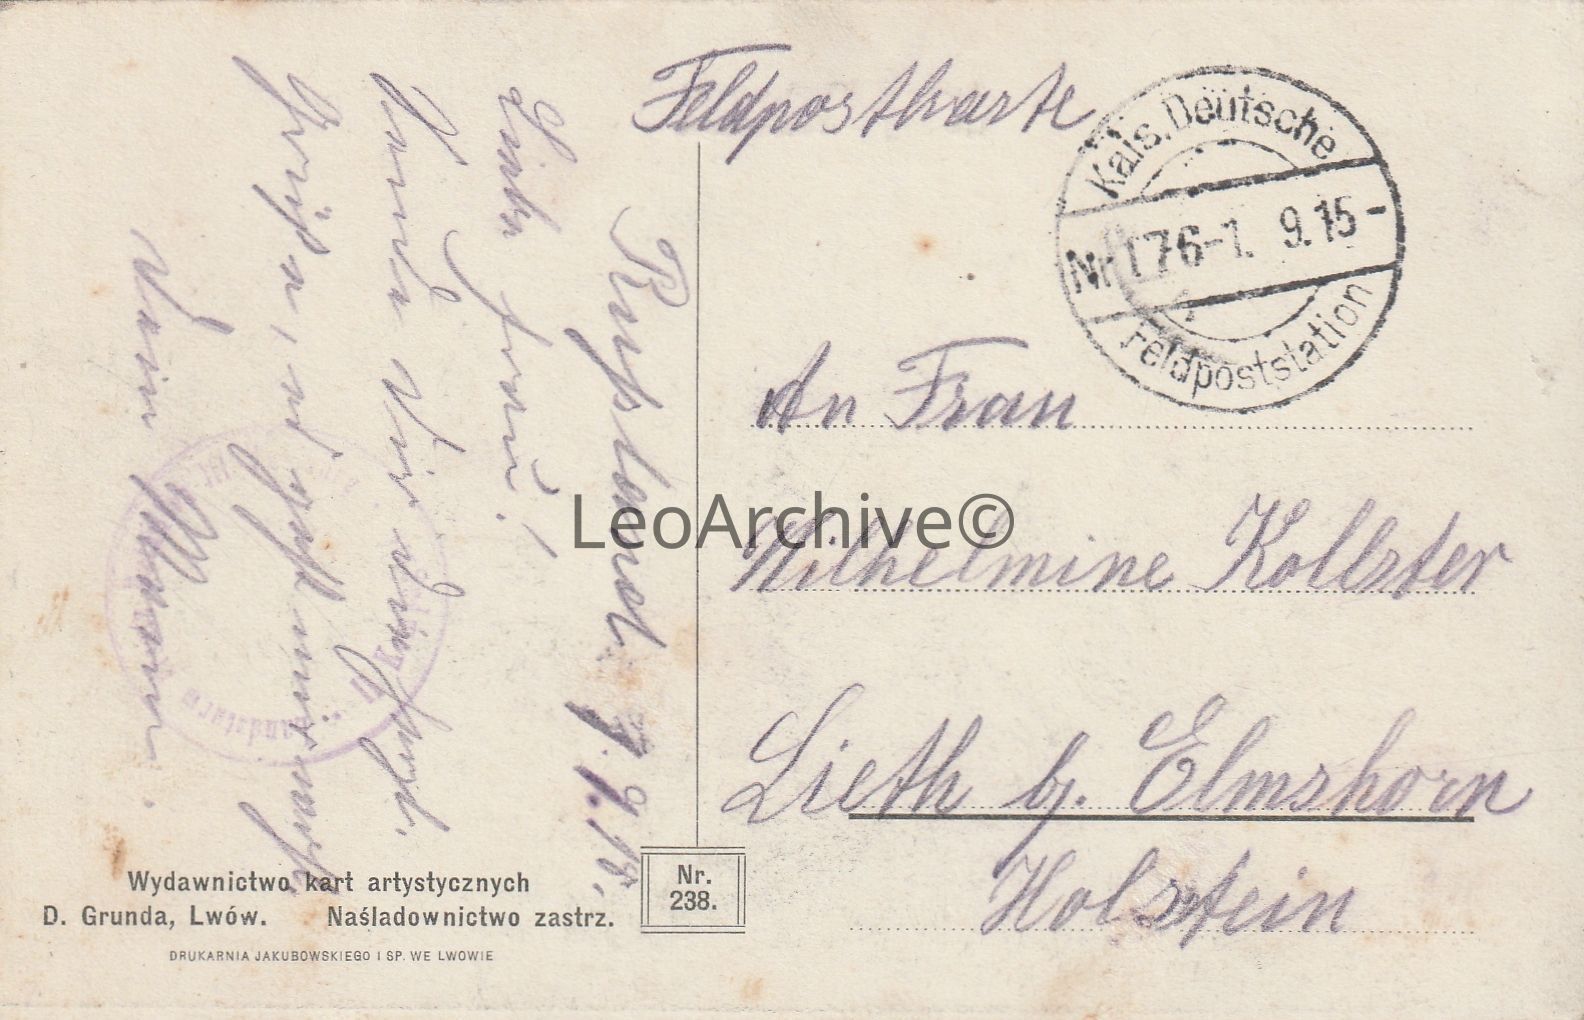 Feldpostkarte
Kais. Deutsche
Nr 176 -1. 9.15-
Feldpoststation
An Frau
Wilhelmine Kollster
Lieth b. Elmshorn
Holstein
Rußland
Liebe Frau!
Sende Dir die
Grüße, es geht mir
Dein Mann.
Landsturm
LeoArchive©
Wydawnictwo kart artystycznych
D. Grunda, Lwów. Naśladownictwo zastrz.
DRUKARNIA JAKUBOWSKIEGO I SP. WE LWOWIE
Nr.
238.